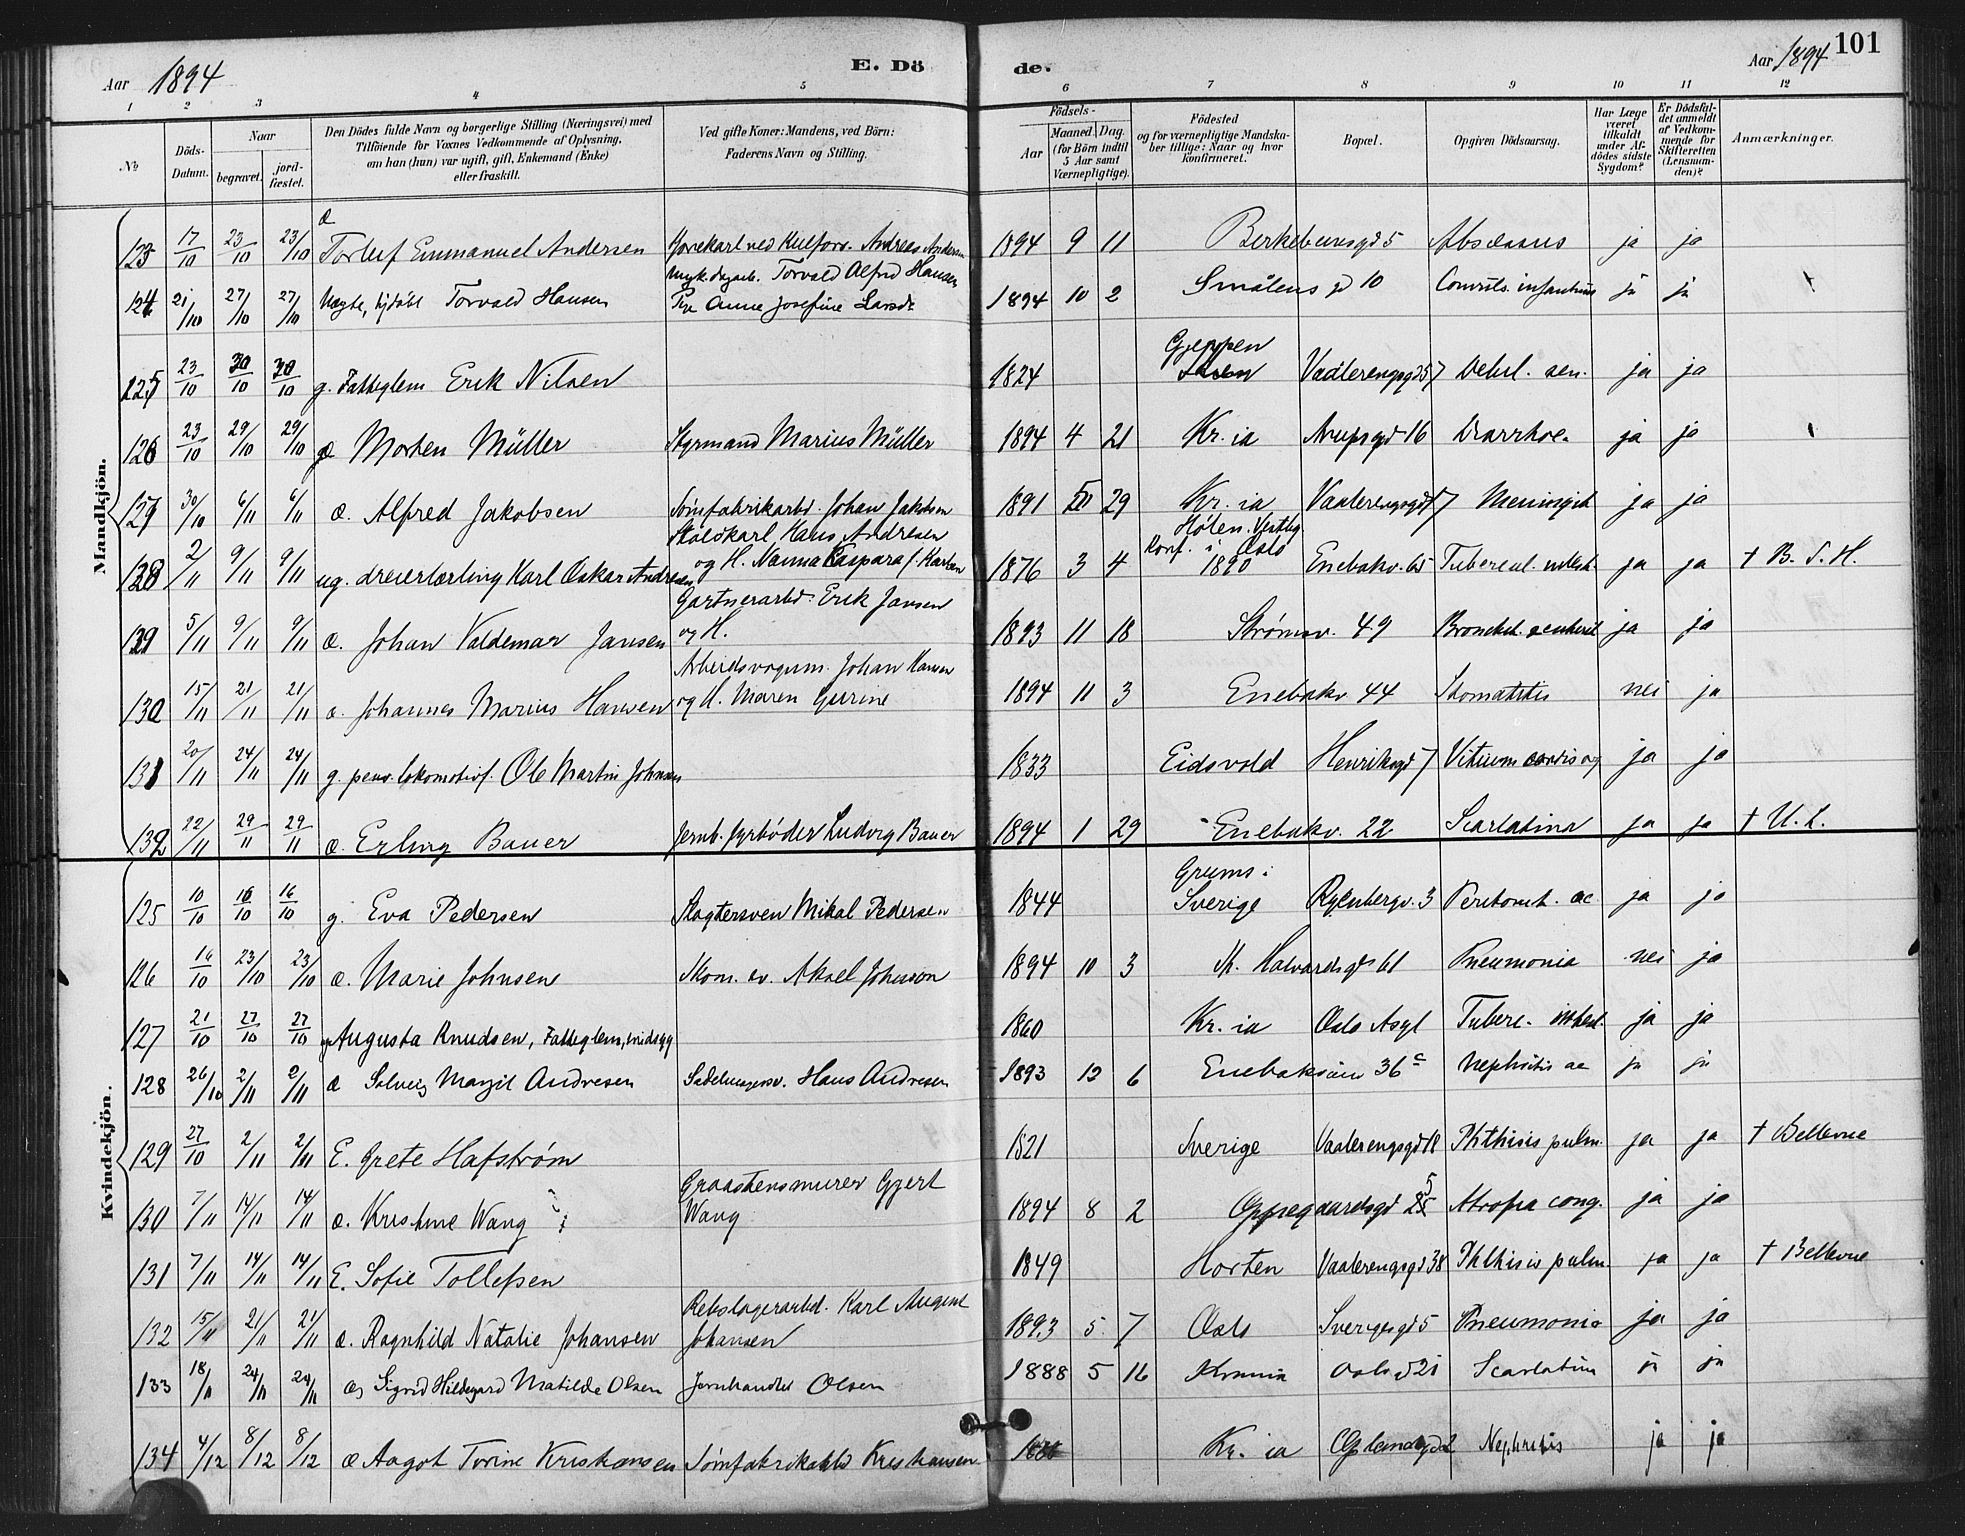 Aar 1894 E. Dö de. Aar 1894 101
1 2 3 4 5 6 7 8 9 10 11 12
No Döds-Datum. Naar begravet. jord-fæstet. Den Dödes fulde Navn og borgerlige Stilling (Næringsvei) med Tilföiende for Voxnes Vedkommende af Oplysning, om han (hun) var ugift, gift, Enkemand (Enke) eller fraskilt. Ved gifte Koner: Mandens, ved Börn: Faderens Navn og Stilling. Födsels- Aar Maaned. Dag. (for Börn indtil 5 Aar samt Værnepligtige). Födested og for værnepligtige Mandska-ber tillige: Naar og hvor konfirmeret. Bopæl. Opgiven Dödsaarsag. Har Læge været tilkaldt under Af-dödes sidste Sygdom? Er Dödsfal-det anmeldt af Vedkom-mende for Skifteretten (Lensman-den)? Anmærkninger.
Mandkjön.
123 17/10 23/10 23/10 Æ Torleif Emmanuel Andersen Andreas Andersen 1894 9 11 Birkebeinsgd 5 Abscessus ja ja
124 21/10 27/10 27/10 Uægte, hjdøbt Torvald Hansen Torvald Alfred Hansen Pige Anne Josefine Larsdt. 1894 10 2 Smålens gd 10 Convuls. infantum ja ja
125 23/10 30/10 30/10 g. Fattiglem Erik Nilsen 1824 Gjerpen Vaalerengsgd 57 Debil. sen. ja ja
126 23/10 29/10 29/10 æ Morten Müller Styrmand Marius Müller 1894 4 21 Kr.ia Arupsgd 16 Diarrhoe. ja ja
127 30/10 6/11 6/11 æ. Alfred Jakobsen Sømfabrikarbd. Johan Jakobsen 1891 29 Kr.ia Vaalerengsgd Meningit. ja ja
128 2/11 9/11 9/11 ug. dreierlærling Karl Oskar Andresen Hans Andresen og H. Nanna Kaspara f. Karlsen 1876 3 4 Hølen. Vestby Konf. i Oslo 1890 Enebakv. 65 Tubercul. ja ja † B. S. H.
129 5/11 9/11 9/11 æ. Johan Valdemar Jansen Gartnerarbd. Erik Jansen og H. 1893 11 18 Strømsv. 49 Bronchit. ja ja
130 15/11 21/11 21/11 æ. Johannes Marius Hansen Arbeidsvognm. Johan Hansen og H. Maren Gurine 1894 11 3 Enebakv 44 Stomatitis nei ja
131 20/11 24/11 24/11 g. pens. lokomotivf. Ole Martin Johnsen 1833 Eidsvold Henriksgd 7 Vitium cordis ja ja
132 22/11 29/11 29/11 æ. Erling Bauer Jernb. fyrbøder Ludvig Bauer 1894 1 29 Enebakv. 22 Scarlatina ja ja † U. L.
Kvindekjön.
125 10/10 16/10 16/10 g. Eva Pedersen Slagtersven Mikal Pedersen 1844 Grums i Sverige Ryenbergv. 3 Peritonit. ac. ja ja
126 16/10 23/10 23/10 æ. Marie Johnsen Skom. sv. Aksel Johnson 1894 10 3 St. Halvardsgd 61 Pneumonia nei ja
127 21/10 27/10 27/10 Augusta Knudsen, Fattiglem, sindssyg 1860 Kr.ia Oslo Asyl Tuberc. intest. ja ja
128 26/10 2/11 2/11 æ Solveig Margit Andresen Sadelmagersv. Hans Andresen 1893 12 6 Enebakveien 36 c Nephritis ac ja ja
129 27/10 2/11 2/11 E. Grete Hafstrøm 1821 Sverige Vaalerengsgd 18 Phthisis pulm. ja ja † Bellevue
130 7/11 14/11 14/11 æ. Kristine Wang Graastensmurer Gjert Wang 1894 8 2 Oppegaardsgd 25 Atrofia cong. ja ja
131 7/11 14/11 14/11 E. Sofie Tollefsen 1849 Horten Vaalerengsgd 38 Phthisis pulm. ja ja † Bellevue
132 15/11 21/11 21/11 æ. Ragnhild Natalie Johansen Rebslagerarbd. Karl August Johansen 1893 5 7 Oslo Sverigesgd 5 Pneumonia ja ja
133 18/11 24/11 24/11 æ Sigrid Hildegard Matilde Olsen Jernhandler Olsen 1888 5 16 Krania Oslogd 21 Scarlatina ja ja
134 4/12 8/12 8/12 æ Aagot Torine Kristiansen Sømfabrikarbd Kristiansen Kr.ia Nephritis ja ja